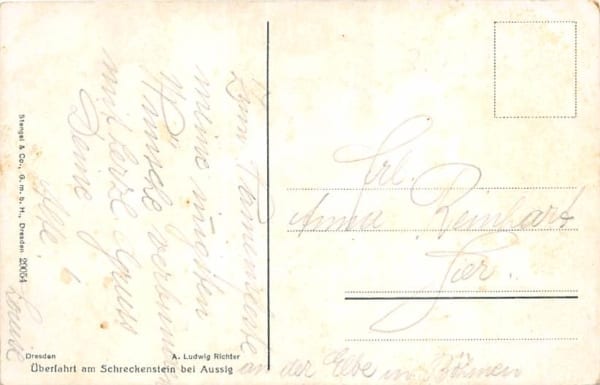 Zum Namensfeste
meine innigsten
Wünsche verbunden
mit herzl. Gruss
Deine
Louise
Frl.
Anna Reinhart
Hier.
an der Elbe in Böhmen
Stengel & Co., G. m. b. H., Dresden 20054
Dresden A. Ludwig Richter
Überfahrt am Schreckenstein bei Aussig